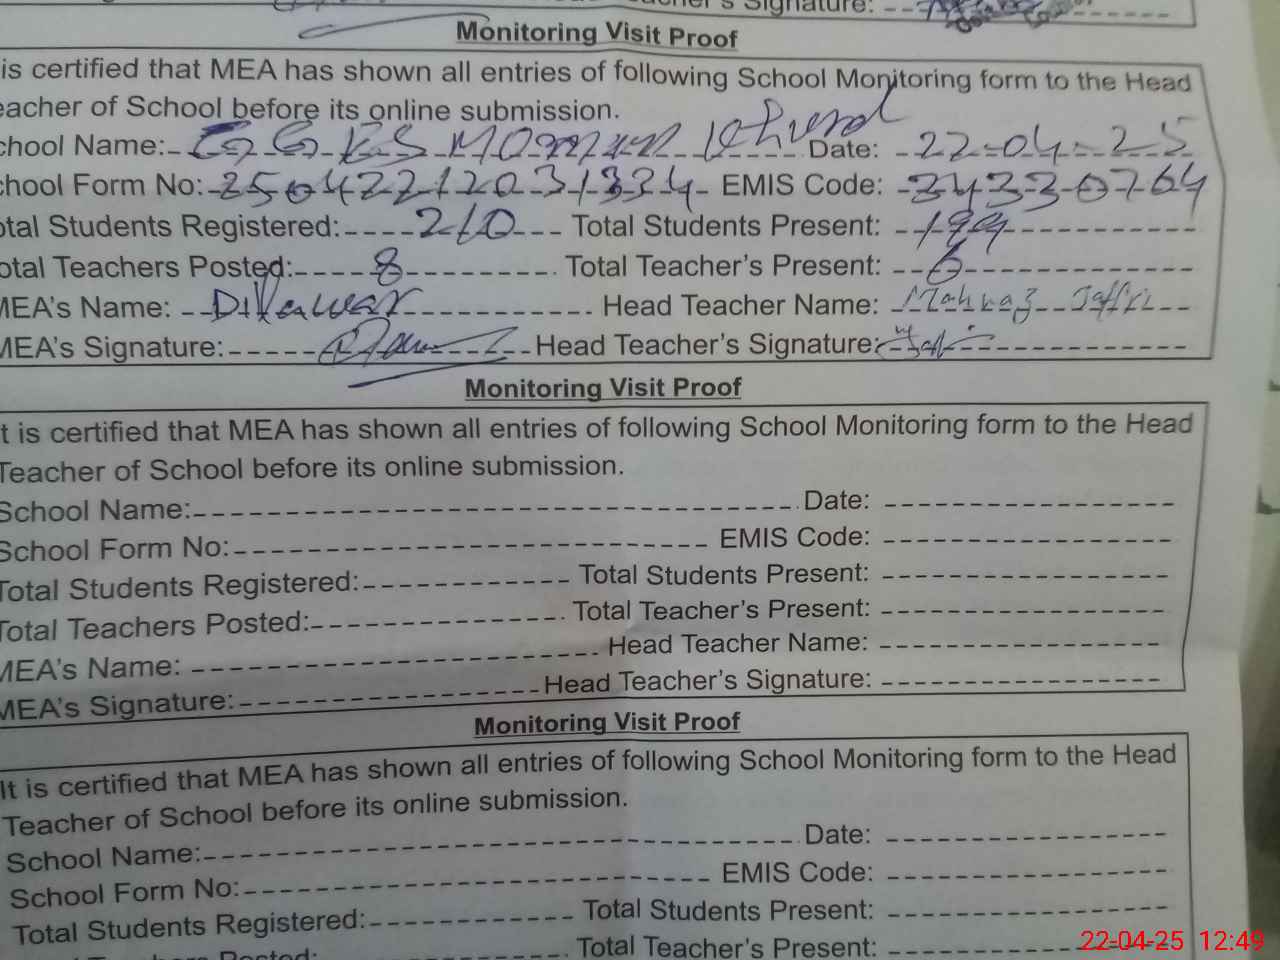 Teacher's Signature:
Monitoring Visit Proof
is certified that MEA has shown all entries of following School Monitoring form to the Head
eacher of School before its online submission.
chool Name: Momman Khurd Date: 22-04-25
chool Form No: 25042212031334 EMIS Code: 34330764
otal Students Registered: 210 Total Students Present: 199
otal Teachers Posted: 8 Total Teacher's Present: 6
MEA's Name: Dilawar Head Teacher Name: Mahnaz Jaffri
MEA's Signature: Head Teacher's Signature:
Monitoring Visit Proof
t is certified that MEA has shown all entries of following School Monitoring form to the Head
Teacher of School before its online submission.
School Name: Date:
School Form No: EMIS Code:
Total Students Registered: Total Students Present:
Total Teachers Posted: Total Teacher's Present:
MEA's Name: Head Teacher Name:
MEA's Signature: Head Teacher's Signature:
Monitoring Visit Proof
It is certified that MEA has shown all entries of following School Monitoring form to the Head
Teacher of School before its online submission.
School Name: Date:
School Form No: EMIS Code:
Total Students Registered: Total Students Present:
Posted: Total Teacher's Present:
22-04-25 12:49